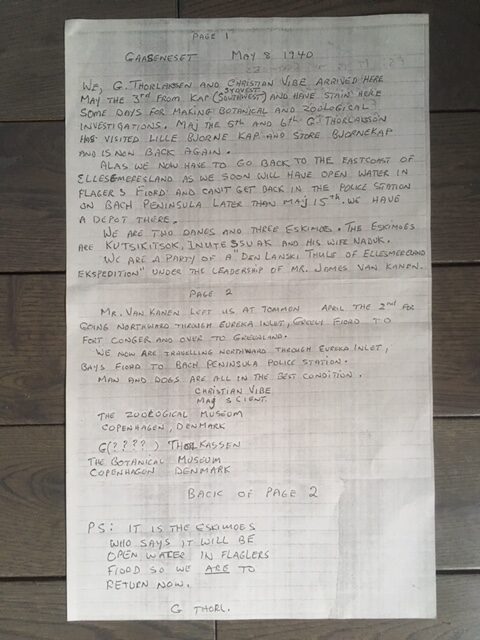 PAGE 1
GAASENESET MAY 8 1940
WE, G. THORLAKSEN AND CHRISTIAN VIBE ARRIVED HERE
SYDVEST
MAY THE 3RD FROM KAP (SOUTHWEST) AND HAVE STAIN HERE
SOME DAYS FOR MAKING BOTANICAL AND ZOOLOGICAL
INVESTIGATIONS. MAJ THE 5TH AND 6TH G. THORLAKSSON
HAS VISITED LILLE BJORNE KAP AND STORE BJORNEKAP
AND IS NOW BACK AGAIN.
ALAS WE NOW HAVE TO GO BACK TO THE EASTCOAST OF
ELLESMERESLAND AS WE SOON WILL HAVE OPEN WATER IN
FLAGERS FIORD AND CAN'T GET BACK IN THE POLICE STATION
ON BACH PENINSULA LATER THAN MAJ 15TH. WE HAVE
A DEPOT THERE.
WE ARE TWO DANES AND THREE ESKIMOES. THE ESKIMOES
ARE KUTSIKITSOK, INUTESSUAK AND HIS WIFE NADUK.
WE ARE A PARTY OF A "DEN LANSKI THULE OF ELLESMERELUND
EKSPEDITION" UNDER THE LEADERSHIP OF MR. JAMES VAN KANEN.
PAGE 2
MR. VAN KANEN LEFT US AT TOMMON APRIL THE 2ND FOR
GOING NORTHWARD THROUGH EUREKA INLET, GREELY FIORD TO
FORT CONGER AND OVER TO GREENLAND.
WE NOW ARE TRAVELLING NORTHWARD THROUGH EUREKA INLET,
BAYS FIORD TO BACH PENINSULA POLICE STATION.
MAN AND DOGS ARE ALL IN THE BEST CONDITION.
CHRISTIAN VIBE
MAG SCIENT.
THE ZOOLOGICAL MUSEUM
COPENHAGEN, DENMARK
G(????) THORKASSEN
THE BOTANICAL MUSEUM
COPENHAGEN DENMARK
BACK OF PAGE 2
PS: IT IS THE ESKIMOES
WHO SAYS IT WILL BE
OPEN WATER IN FLAGLERS
FIORD SO WE ARE TO
RETURN NOW.
G THORL.